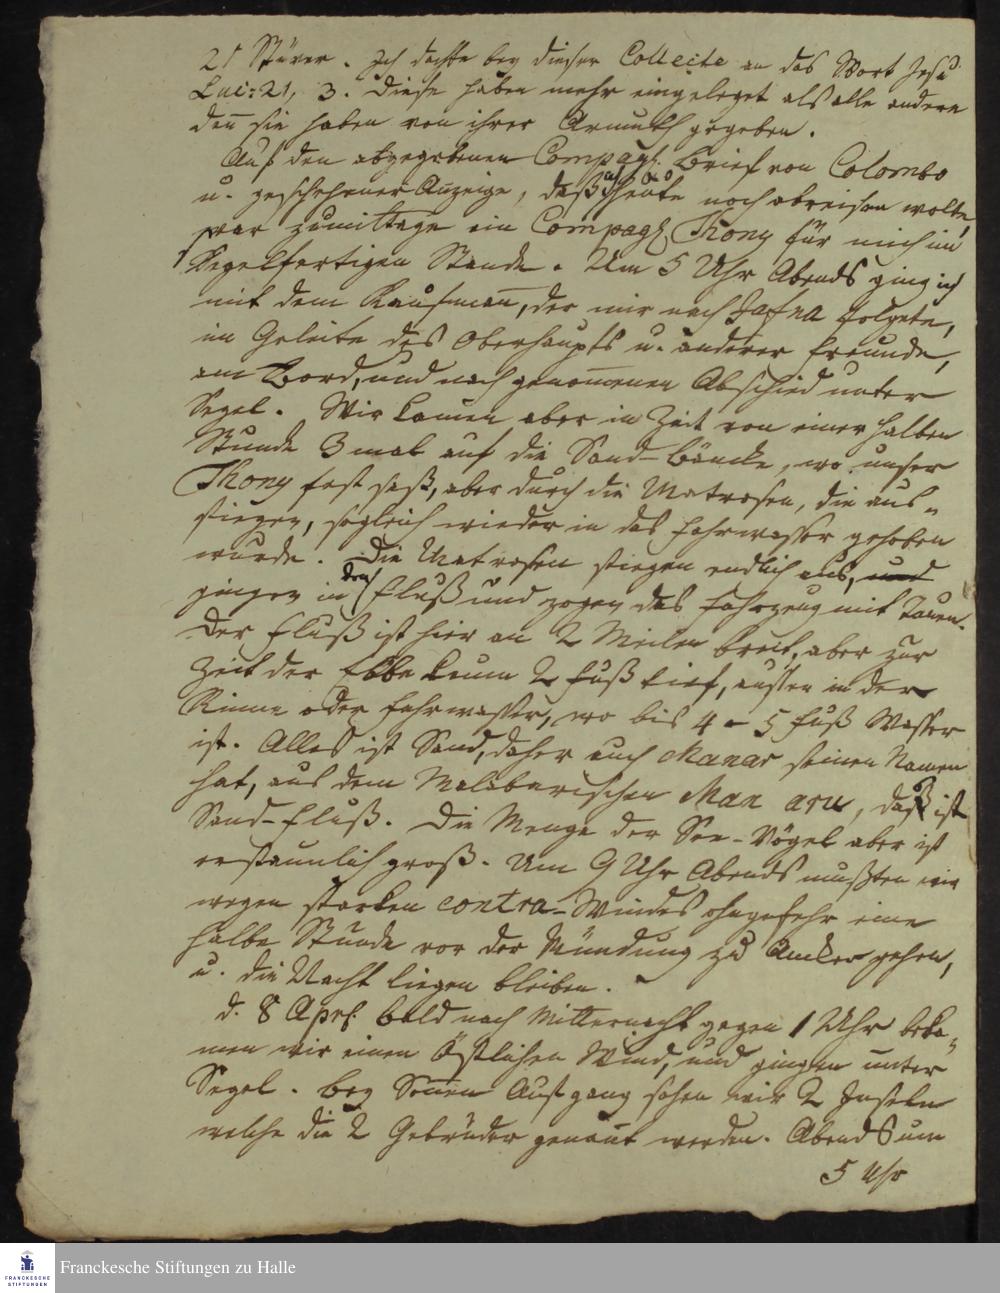 21 Stüver. Ich dachte bey dieser Collecte an das Wort Jesu
Luc: 21, 3. diese haben mehr eingeleget als alle andere
den̄ sie haben von ihrer Armuth gegeben.
Auf den abgegebenen Compagˢ. Brief von Colombo
u. geschehener Anzeige, daß ich heute noch abreisen wolte,
war zumittage ein Compagˢ Thony für mich im
Segelfertigen Stande. Um 5 Uhr Abends ging ich
mit dem Kaufman̄, der mir nach Jafna folgete,
im Geleite des Oberhaupts u. anderer Freunde,
am Bord, und nach genom̄enen Abschied unter
Segel. Wir kamen aber in Zeit von einer halben
Stunde 3 mal auf die Sand-Bäncke, wo unser
Thony fest saß, aber durch die Matrosen, die aus-
stiegen, sogleich wieder in das Fahrwasser gehoben
wurde. Die Matrosen stiegen endlich aus, und
gingen in den Fluß und zogen das Fahrzeug mit Tauen.
Der Fluß ist hier an 2 Meilen breit, aber zur
Zeit der Ebbe kaum 2 Fuß tief, ausser in der
Rinne oder Fahrwasser, wo bis 4 - 5 Fuß Wasser
ist. Alles ist Sand, daher auch Manar seinen Namen
hat, aus dem Malabarischen Man aru, daß ist
Sand-Fluß. Die Menge der See-Vögel aber ist
erstaunlich groß. Um 9 Uhr Abends mußten wir
wegen starken contra-Windes ohngefehr eine
halbe Stunde vor der Mündung zu Ancker gehen,
u. die Nacht liegen bleiben.
d. 8 Apr. bald nach Mitternacht gegen 1 Uhr beka-
men wir einen Östlichen Wind, und gingen unter
Segel. bey Son̄en Aufgang sahen wir 2 Inseln
welche die 2 Gebrüder genan̄t werden. Abends um
5 Uhr
FRANCKESCHE
STIFTUNGEN
Franckesche Stiftungen zu Halle